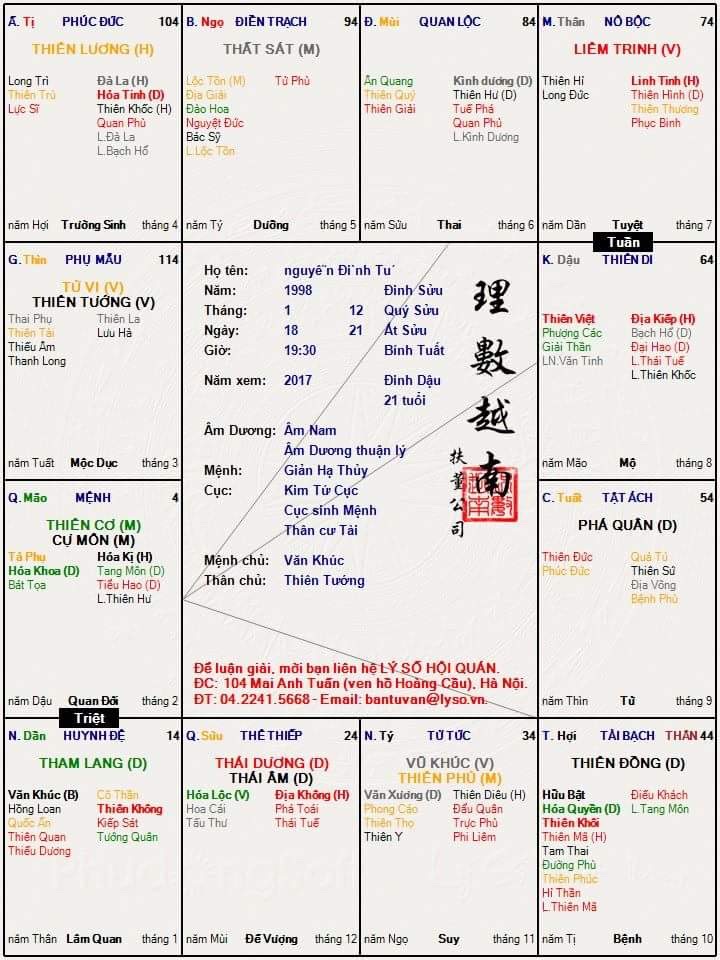 Ấ. Tị PHÚC ĐỨC 104
THIÊN LƯƠNG (H)
Long Trì
Thiên Trù
Lực Sĩ
Đà La (H)
Hỏa Tinh (D)
Thiên Khốc (H)
Quan Phù
L.Đà La
L.Bạch Hổ
năm Hợi Trường Sinh tháng 4
B. Ngọ ĐIỀN TRẠCH 94
THẤT SÁT (M)
Lộc Tồn (M)
Địa Giải
Đào Hoa
Nguyệt Đức
Bác Sỹ
L.Lộc Tồn
Tử Phù
năm Tý Dưỡng tháng 5
Đ. Mùi QUAN LỘC 84
Ân Quang
Thiên Quý
Thiên Giải
Kình dương (D)
Thiên Hư (D)
Tuế Phá
Quan Phủ
L.Kình Dương
năm Sửu Thai tháng 6
M. Thân NÔ BỘC 74
LIÊM TRINH (V)
Thiên Hỉ
Long Đức
Linh Tinh (H)
Thiên Hình (D)
Thiên Thương
Phục Binh
năm Dần Tuyệt tháng 7
Tuần
G. Thìn PHỤ MẪU 114
TỬ VI (V)
THIÊN TƯỚNG (V)
Thai Phụ
Thiên Tài
Thiếu Âm
Thanh Long
Thiên La
Lưu Hà
năm Tuất Mộc Dục tháng 3
Họ tên: nguyê˜n Đi`nh Tu´
Năm: 1998 Đinh Sửu
Tháng: 1 12 Quý Sửu
Ngày: 18 21 Ất Sửu
Giờ: 19:30 Bính Tuất
Năm xem: 2017 Đinh Dậu
21 tuổi
Âm Dương: Âm Nam
Âm Dương thuận lý
Mệnh: Giản Hạ Thủy
Cục: Kim Tứ Cục
Cục sinh Mệnh
Thân cư Tài
Mệnh chủ: Văn Khúc
Thân chủ: Thiên Tướng
理數越南
扶董公司
Để luận giải, mời bạn liên hệ LÝ SỐ HỘI QUÁN.
ĐC: 104 Mai Anh Tuấn (ven hồ Hoàng Cầu), Hà Nội.
ĐT: 04.2241.5668 - Email: bantuvan@lyso.vn.
K. Dậu THIÊN DI 64
Thiên Việt
Phượng Các
Giải Thần
LN.Văn Tinh
Địa Kiếp (H)
Bạch Hổ (D)
Đại Hao (D)
L.Thái Tuế
L.Thiên Khốc
năm Mão Mộ tháng 8
Q. Mão MỆNH 4
THIÊN CƠ (M)
CỰ MÔN (M)
Tả Phụ
Hóa Khoa (D)
Bát Tọa
Hóa Kị (H)
Tang Môn (D)
Tiểu Hao (D)
L.Thiên Hư
năm Dậu Quan Đới tháng 2
Triệt
C. Tuất TẬT ÁCH 54
PHÁ QUÂN (D)
Thiên Đức
Phúc Đức
Quả Tú
Thiên Sứ
Địa Võng
Bệnh Phù
năm Thìn Tử tháng 9
N. Dần HUYNH ĐỆ 14
THAM LANG (D)
Văn Khúc (B)
Hồng Loan
Quốc Ấn
Thiên Quan
Thiếu Dương
Cô Thần
Thiên Không
Kiếp Sát
Tướng Quân
năm Thân Lâm Quan tháng 1
Q. Sửu THÊ THIẾP 24
THÁI DƯƠNG (D)
THÁI ÂM (D)
Hóa Lộc (V)
Hoa Cái
Tấu Thư
Địa Không (H)
Phá Toái
Thái Tuế
năm Mùi Đế Vượng tháng 12
N. Tý TỬ TỨC 34
VŨ KHÚC (V)
THIÊN PHỦ (M)
Văn Xương (D)
Phong Cáo
Thiên Thọ
Thiên Y
Thiên Diêu (H)
Đẩu Quân
Trực Phù
Phi Liêm
năm Ngọ Suy tháng 11
T. Hợi TÀI BẠCH THÂN 44
THIÊN ĐỒNG (D)
Hữu Bật
Hóa Quyền (D)
Thiên Khôi
Thiên Mã (H)
Tam Thai
Đường Phù
Thiên Phúc
Hỉ Thần
L.Thiên Mã
Điếu Khách
L.Tang Môn
năm Tị Bệnh tháng 10